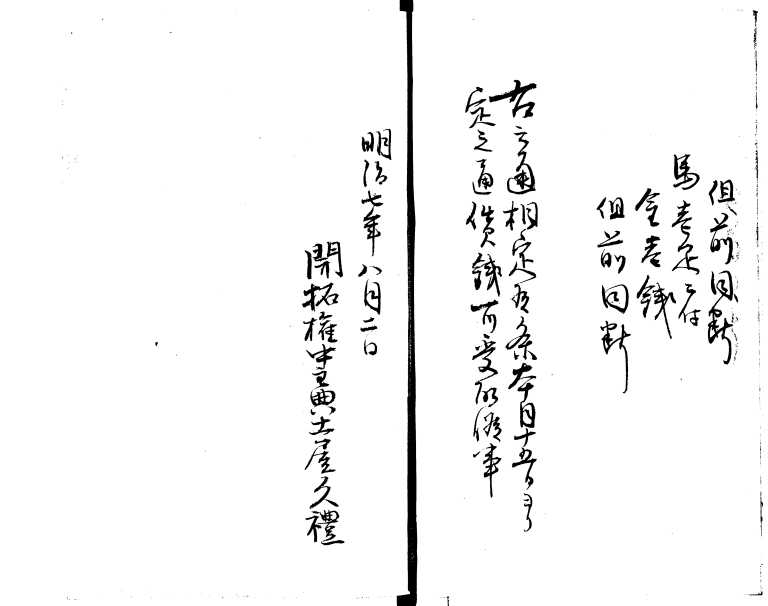 但前同断
馬壱疋ニ付
金壱銭
但前同断
右之通相定候条本月十五日ヨリ
定之通償銭可受取候事
明治七年八月二日
開拓権中主典土屋久禮